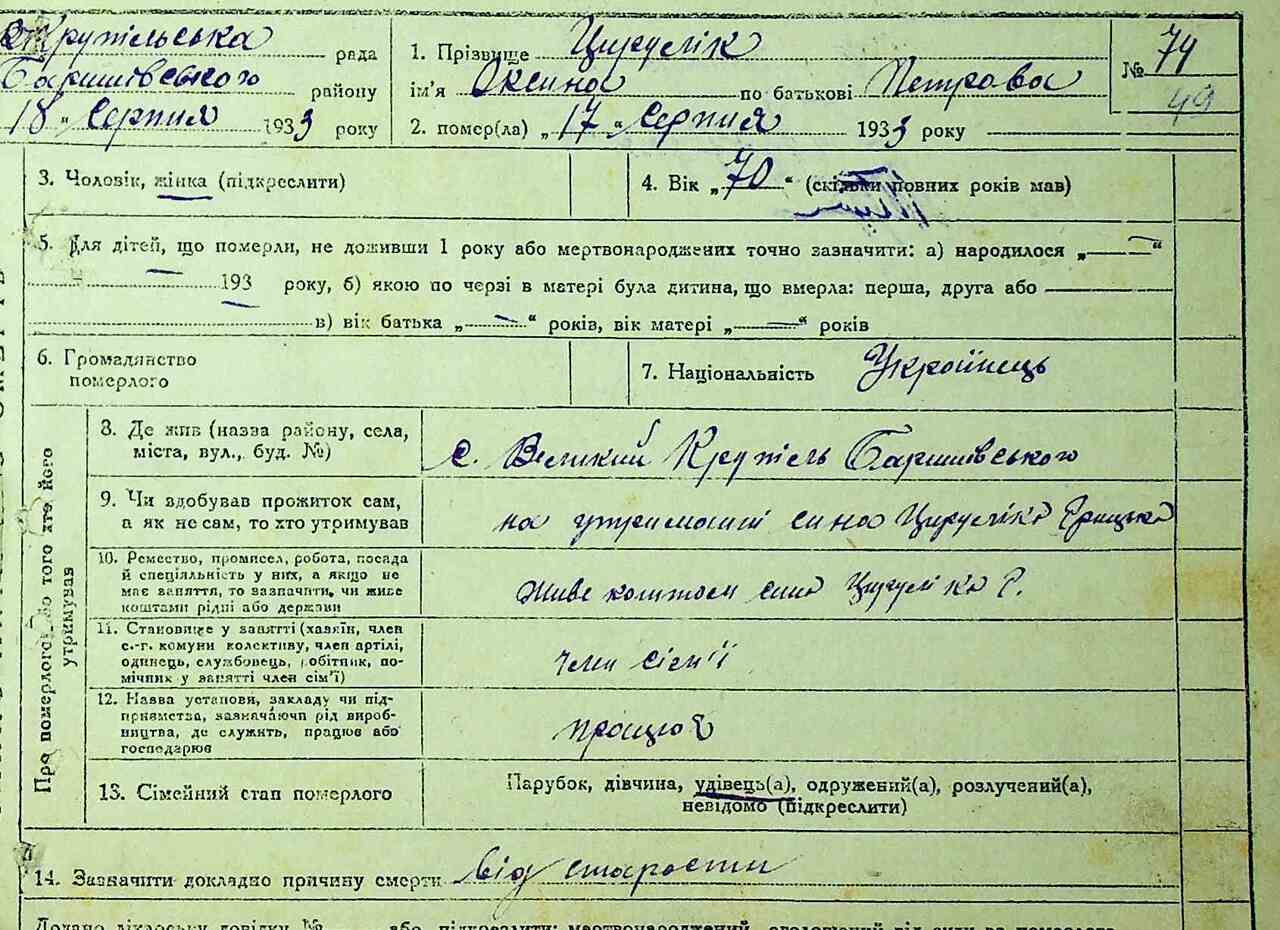 Крутільська рада
Баришівського району
18 „ Серпня 1933 року
1. Прізвище Цируслік
ім'я Оксина по батькові Петрова
2. помер(ла) „ 17 “ Серпня 1933 року
№ 74
49
3. Чоловік, жінка (підкреслити)
4. Вік „ 70 “ (скільки повних років мав)
5. Для дітей, що померли, не доживши 1 року або мертвонароджених точно зазначити: а) народилося „ — “
193 року, б) якою по черзі в матері була дитина, що вмерла: перша, друга або
в) вік батька „ — “ років, вік матері „ — “ років
6. Громадянство
померлого
7. Національність Українець
Про померлого, або того хто його
утримував
8. Де жив (назва району, села,
міста, вул., буд. №)
с. Великий Крутіль Баришівського
9. Чи здобував прожиток сам,
а як не сам, то хто утримував
на утриманні сина Цирусліка Грицька
10. Ремество, промисел, робота, посада
й спеціяльність у них, а якщо не
має заняття, то зазначити, чи живе
коштами рідні або держави
живе коштом сина Цирусліка Г.
11. Становище у занятті (хазяїн, член
с.-г. комуни колективу, член артілі,
одинець, службовець, робітник, по-
мічник у занятті член сім'ї)
член сієм'ї
12. Назва установи, закладу чи під-
приємства, зазначаючи рід вироб-
ництва, де служить, працює або
господарює
працює
13. Сімейний стан померлого
Парубок, дівчина, удівець(а), одружений(а), розлучений(а),
невідомо (підкреслити)
14. Зазначити докладно причину смерти від старости
Додано лікарську довідку №